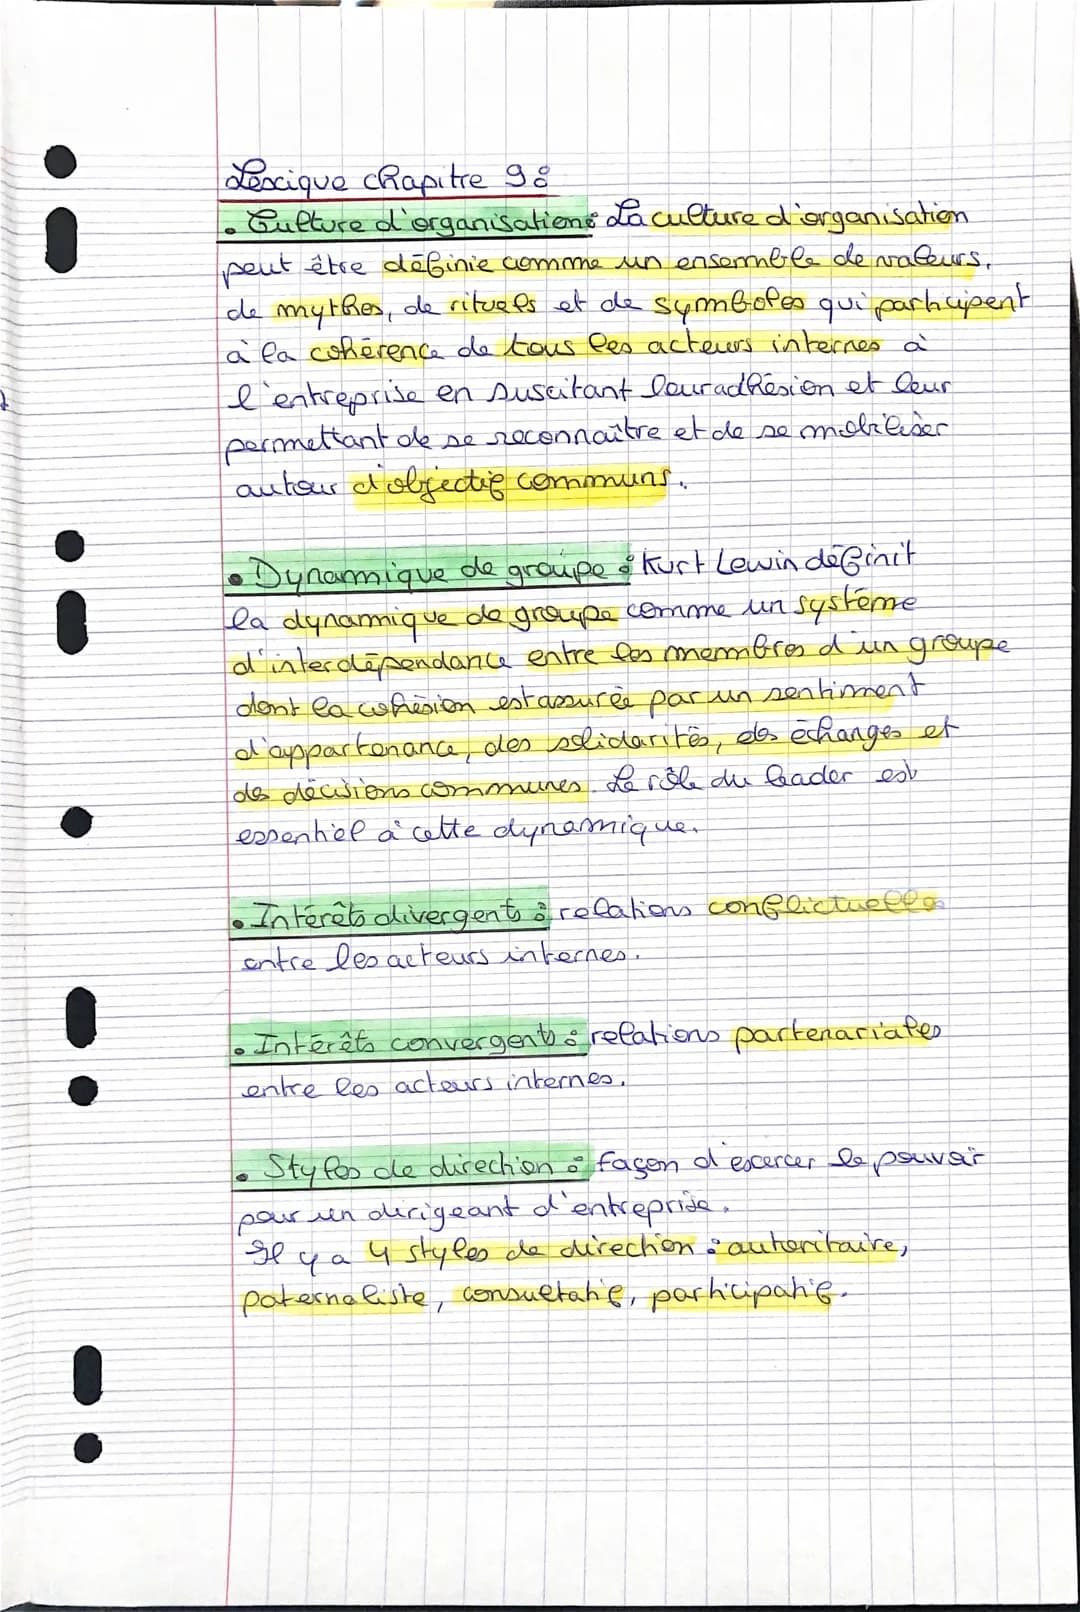 Lexique chapitre 9 :
• Culture d'organisation : La culture d'organisation
peut être définie comme un ensemble de valeurs,
de mythes, de rituels et de symboles qui participent
à la cohérence de tous les acteurs internes à
l'entreprise en suscitant leur adhésion et leur
permettant de se reconnaître et de se mobiliser
autour d'objectif communs.
• Dynamique de groupe : Kurt Lewin définit
la dynamique de groupe comme un système
d'interdépendance entre les membres d'un groupe
dont la cohésion est assurée par un sentiment
d'appartenance, des solidarités, des échanges et
des décisions communes. Le rôle du leader est
essentiel à cette dynamique.
• Intérêts divergents : relations conflictuelles
entre les acteurs internes.
• Intérêts convergents : relations partenariales
entre les acteurs internes.
• Styles de direction : façon d'exercer le pouvoir
pour un dirigeant d'entreprise.
Il y a 4 styles de direction : autoritaire,
paternaliste, consultatif, participatif.